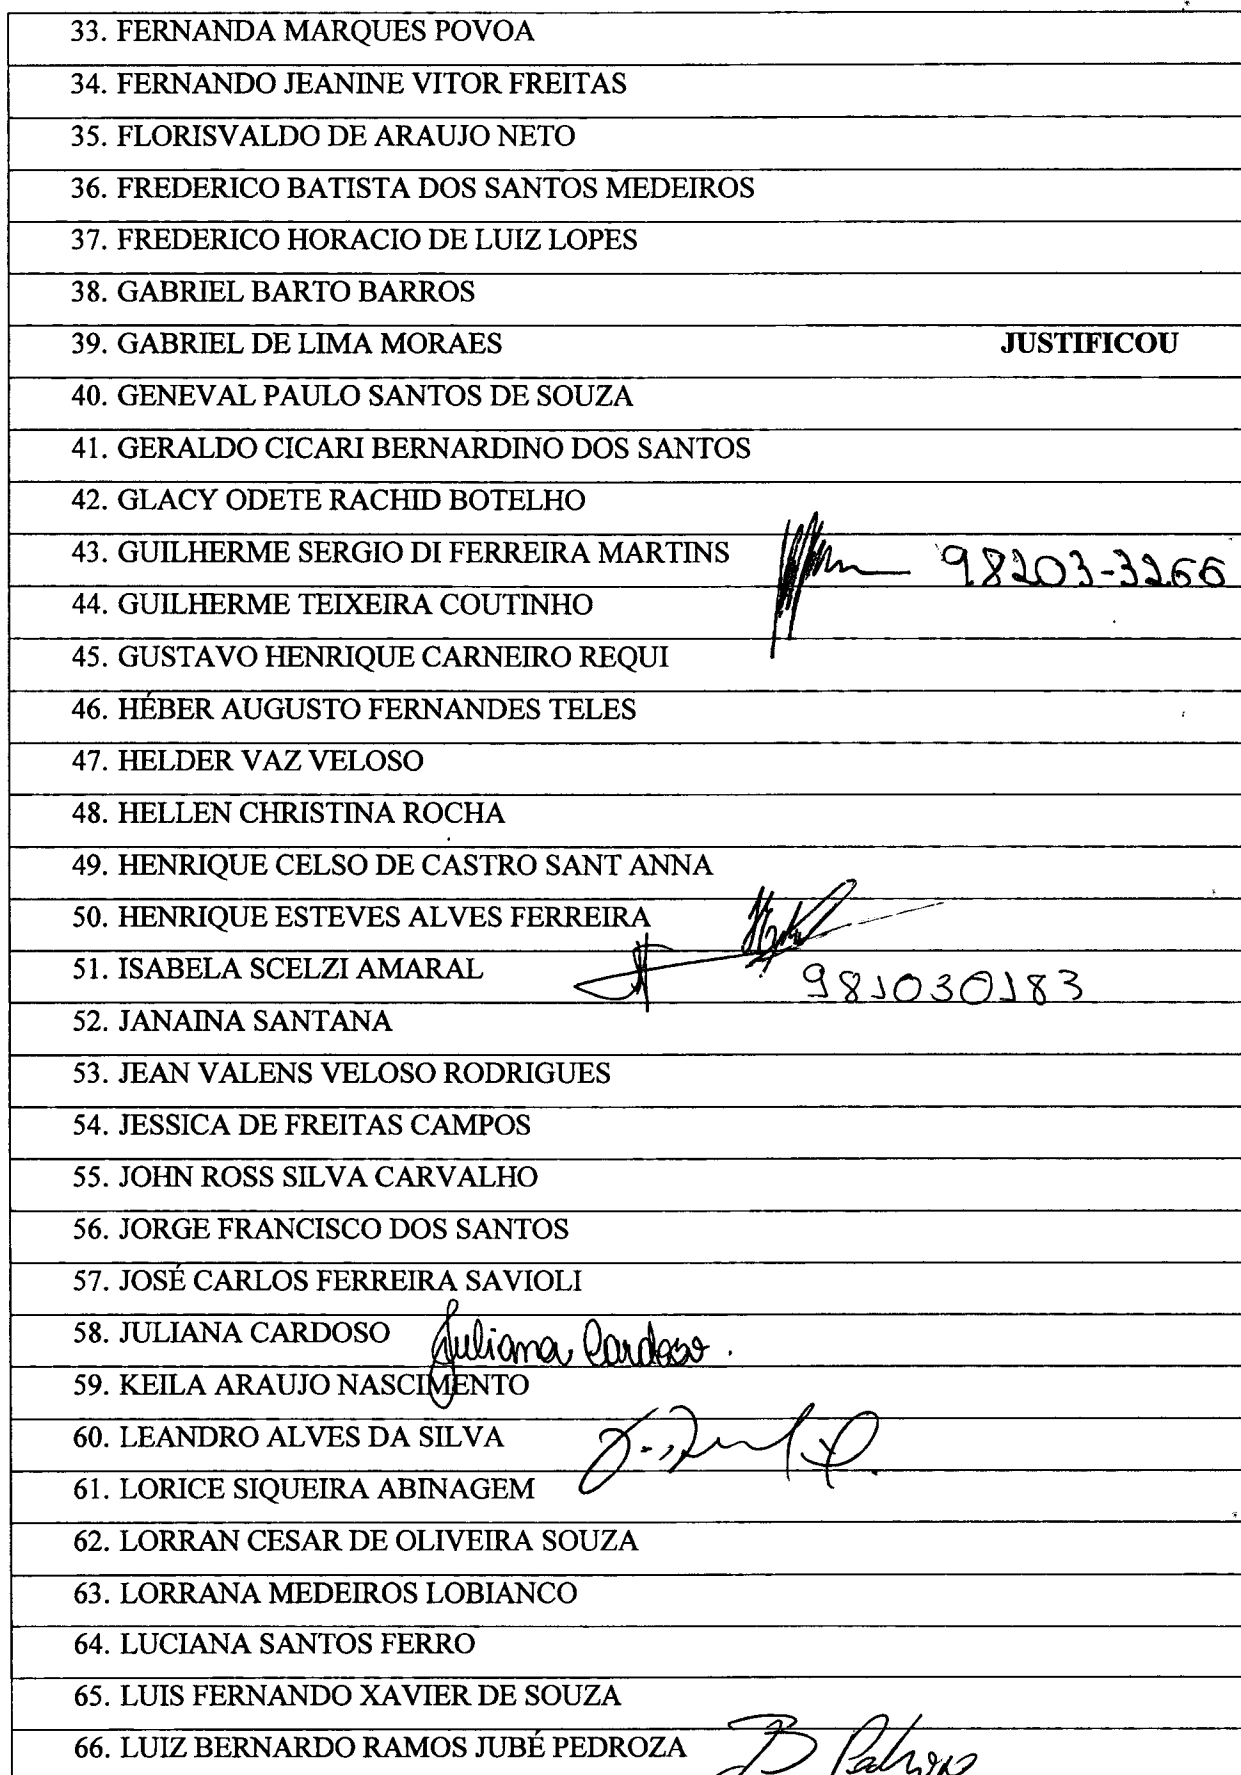 33. FERNANDA MARQUES POVOA
34. FERNANDO JEANINE VITOR FREITAS
35. FLORISVALDO DE ARAUJO NETO
36. FREDERICO BATISTA DOS SANTOS MEDEIROS
37. FREDERICO HORACIO DE LUIZ LOPES
38. GABRIEL BARTO BARROS
39. GABRIEL DE LIMA MORAES JUSTIFICOU
40. GENEVAL PAULO SANTOS DE SOUZA
41. GERALDO CICARI BERNARDINO DOS SANTOS
42. GLACY ODETE RACHID BOTELHO
43. GUILHERME SERGIO DI FERREIRA MARTINS 98203-3266
44. GUILHERME TEIXEIRA COUTINHO
45. GUSTAVO HENRIQUE CARNEIRO REQUI
46. HÉBER AUGUSTO FERNANDES TELES
47. HELDER VAZ VELOSO
48. HELLEN CHRISTINA ROCHA
49. HENRIQUE CELSO DE CASTRO SANT ANNA
50. HENRIQUE ESTEVES ALVES FERREIRA
51. ISABELA SCELZI AMARAL 981030183
52. JANAINA SANTANA
53. JEAN VALENS VELOSO RODRIGUES
54. JESSICA DE FREITAS CAMPOS
55. JOHN ROSS SILVA CARVALHO
56. JORGE FRANCISCO DOS SANTOS
57. JOSÉ CARLOS FERREIRA SAVIOLI
58. JULIANA CARDOSO Juliana Cardoso.
59. KEILA ARAUJO NASCIMENTO
60. LEANDRO ALVES DA SILVA
61. LORICE SIQUEIRA ABINAGEM
62. LORRAN CESAR DE OLIVEIRA SOUZA
63. LORRANA MEDEIROS LOBIANCO
64. LUCIANA SANTOS FERRO
65. LUIS FERNANDO XAVIER DE SOUZA
66. LUIZ BERNARDO RAMOS JUBÉ PEDROZA